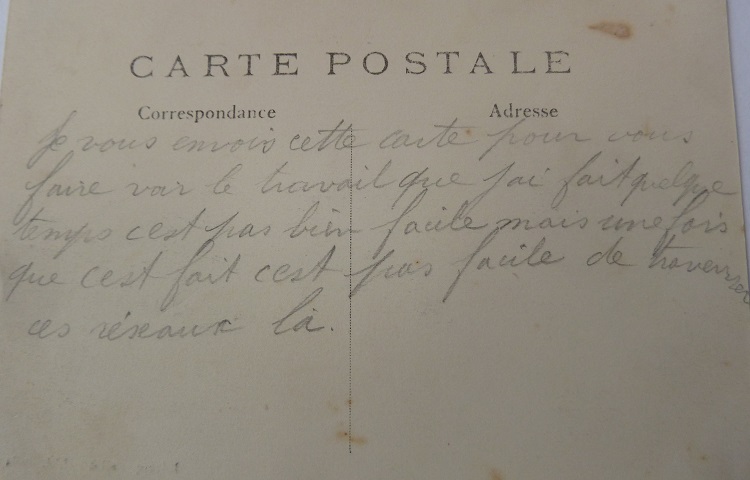 CARTE POSTALE
Correspondance Adresse
Je vous envois cette carte pour vous
faire voir le travail que jai fait quelque
temps cest pas bien facile mais une fois
que cest fait cest pas facile de traverser
ces réseaux là.